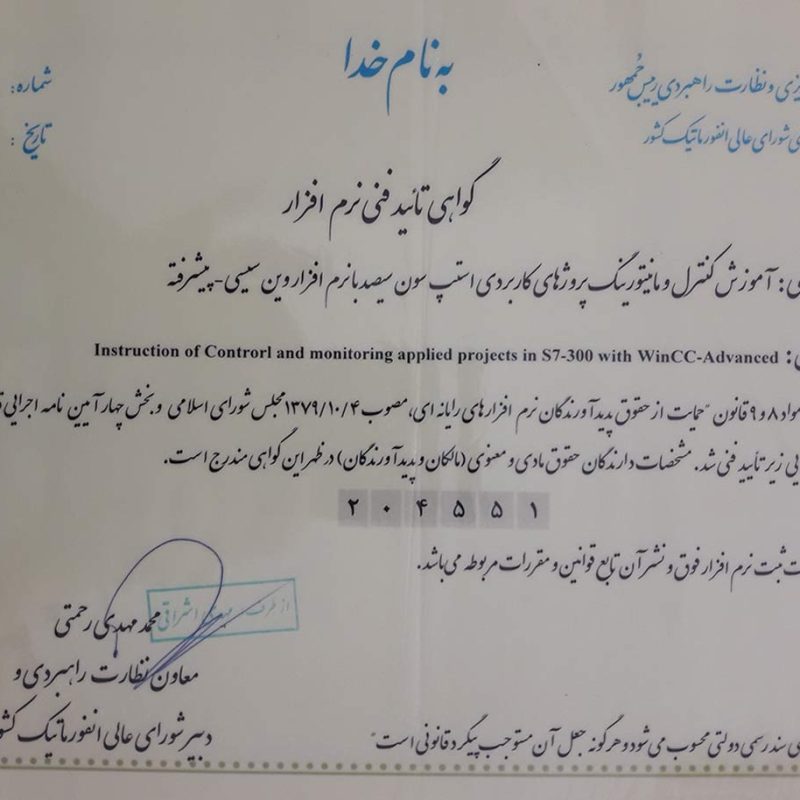 به نام خدا
شماره:
تاریخ :
ریزی و نظارت راهبردی رییس جمهور
شورای عالی انفورماتیک کشور
گواهی تائید فنی نرم افزار
: آموزش کنترل و مانیتورینگ پروژهای کاربردی استپ سون سیصد با نرم افزار وین سیسی - پیشرفته
: Instruction of Controrl and monitoring applied projects in S7-300 with WinCC-Advanced
مواد ۸ و ۹ قانون "حمایت از حقوق پدیدآورندگان نرم افزارهای رایانه ای، مصوب ۱۳۷۹/۱۰/۴ مجلس شورای اسلامی و بخش چهار آیین نامه اجرایی
زیر تأیید فنی شد. مشخصات دارندگان حقوق مادی و معنوی (مالکان و پدیدآورندگان) در ظهر این گواهی مندرج است.
۲ ۰ ۴ ۵ ۵ ۱
ثبت نرم افزار فوق و نشر آن تابع قوانین و مقررات مربوطه می‌باشد.
از طرف مهدی اشراقی
محمد مهدی رحمتی
معاون نظارت راهبردی و
دبیر شورای عالی انفورماتیک کشور
سند رسمی دولتی محسوب می‌شود و هرگونه جعل آن مستوجب پیگرد قانونی است"